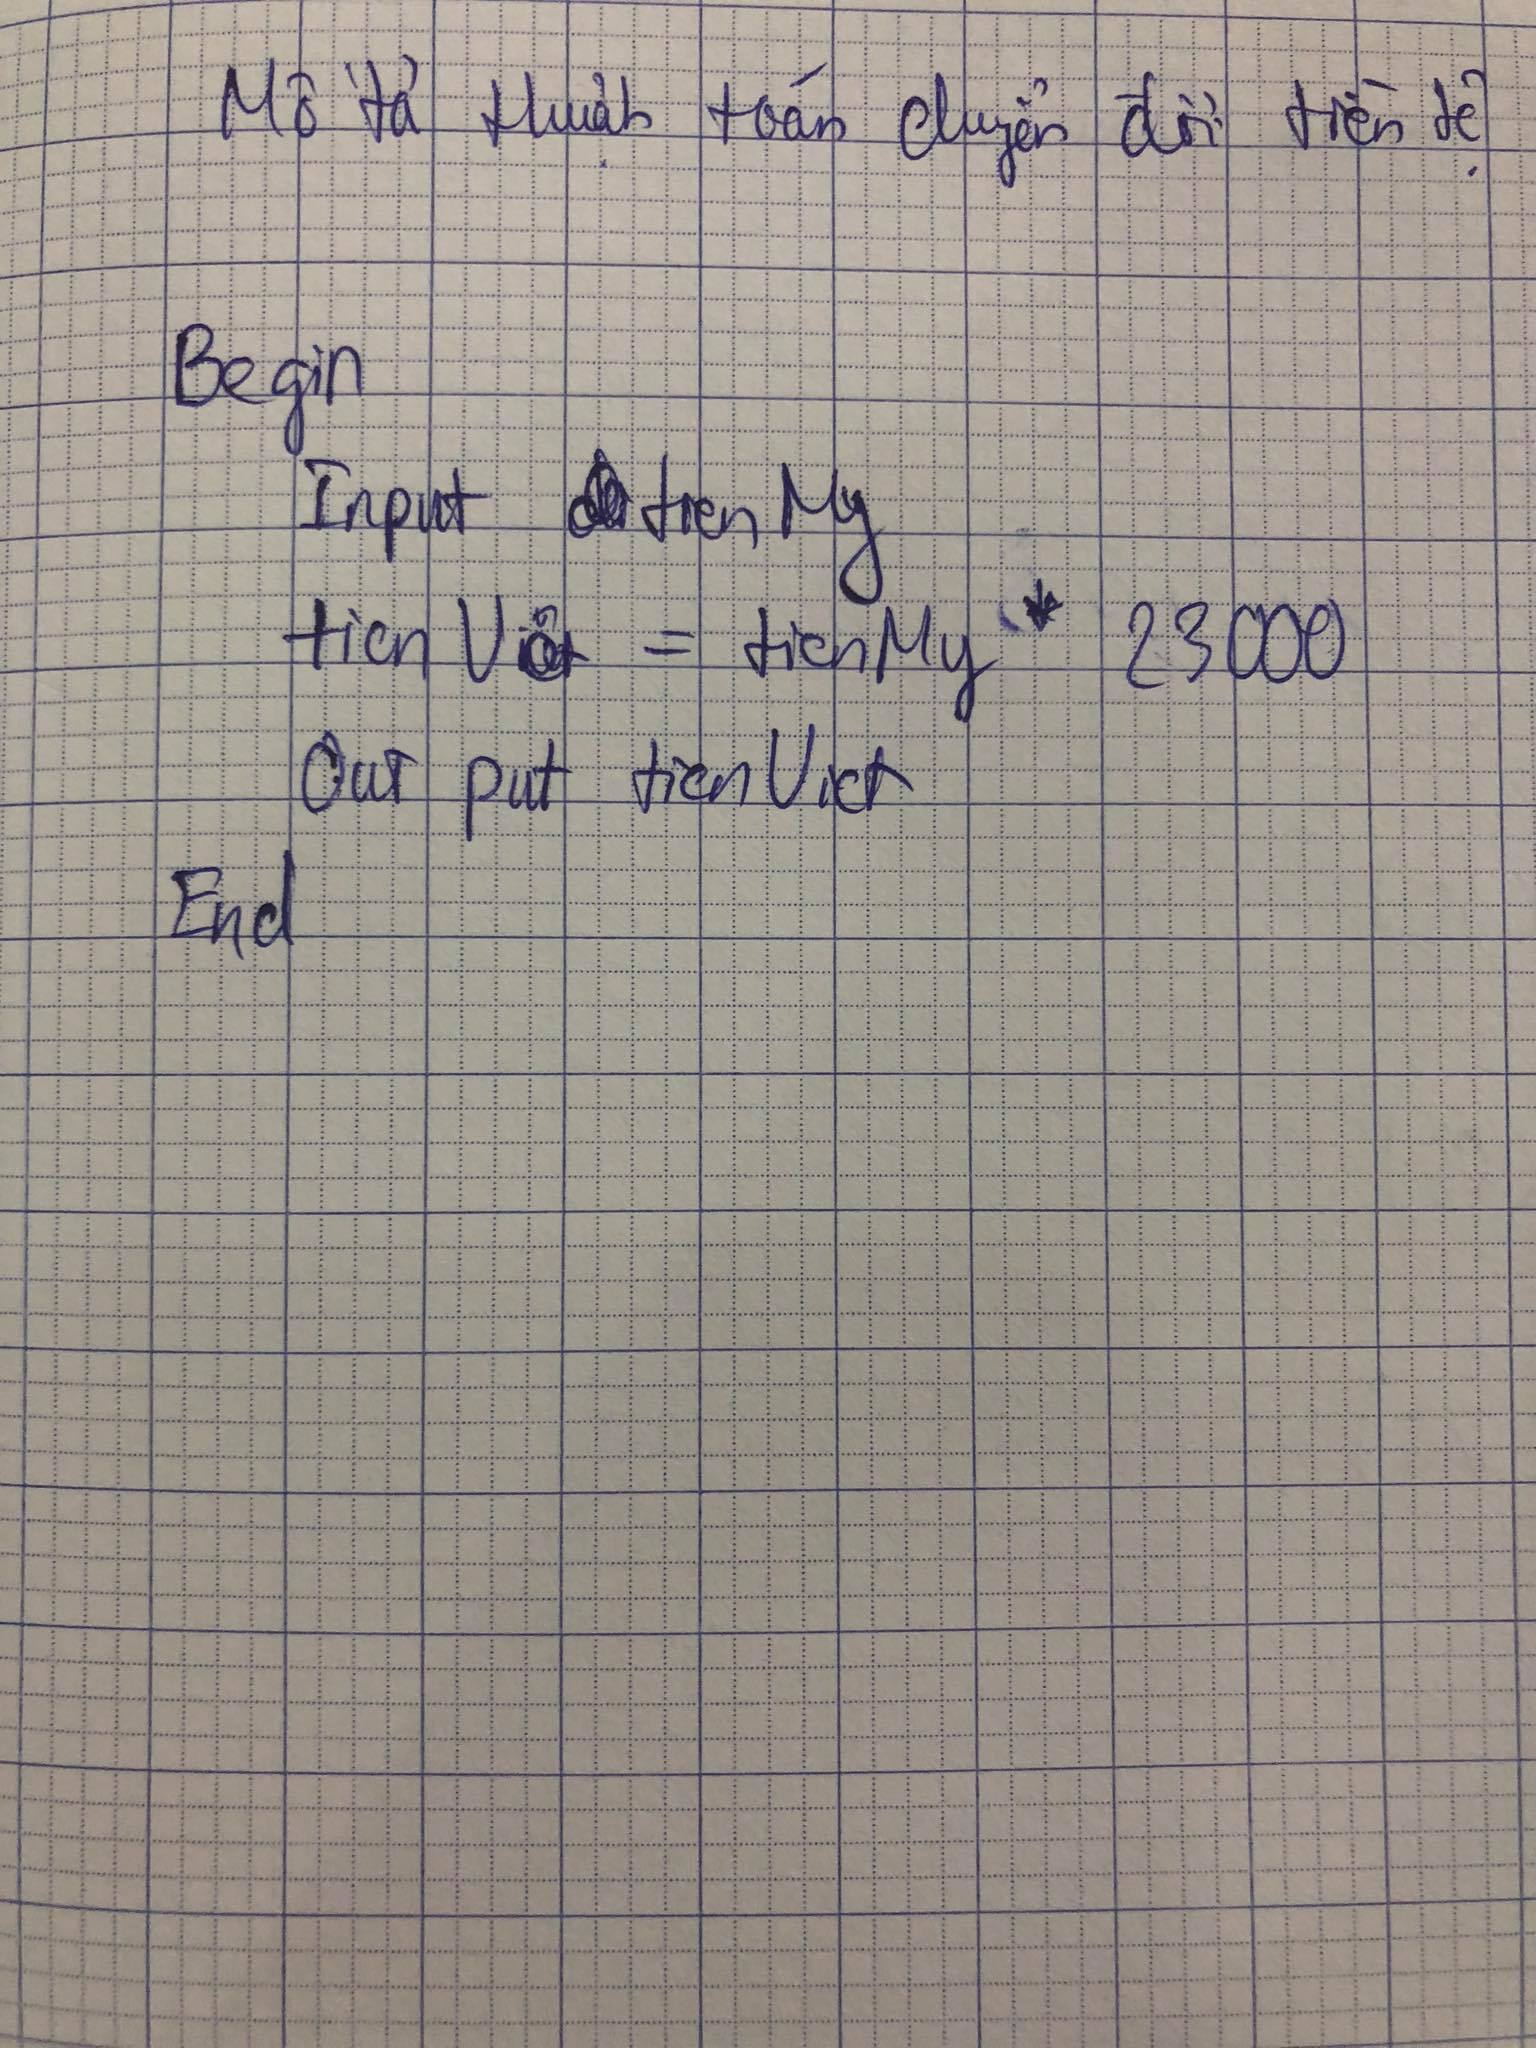 Mô tả thuật toán chuyển đổi tiền tệ
Begin
Input tienMy
tienViet = tienMy * 23000
Out put tienViet
End